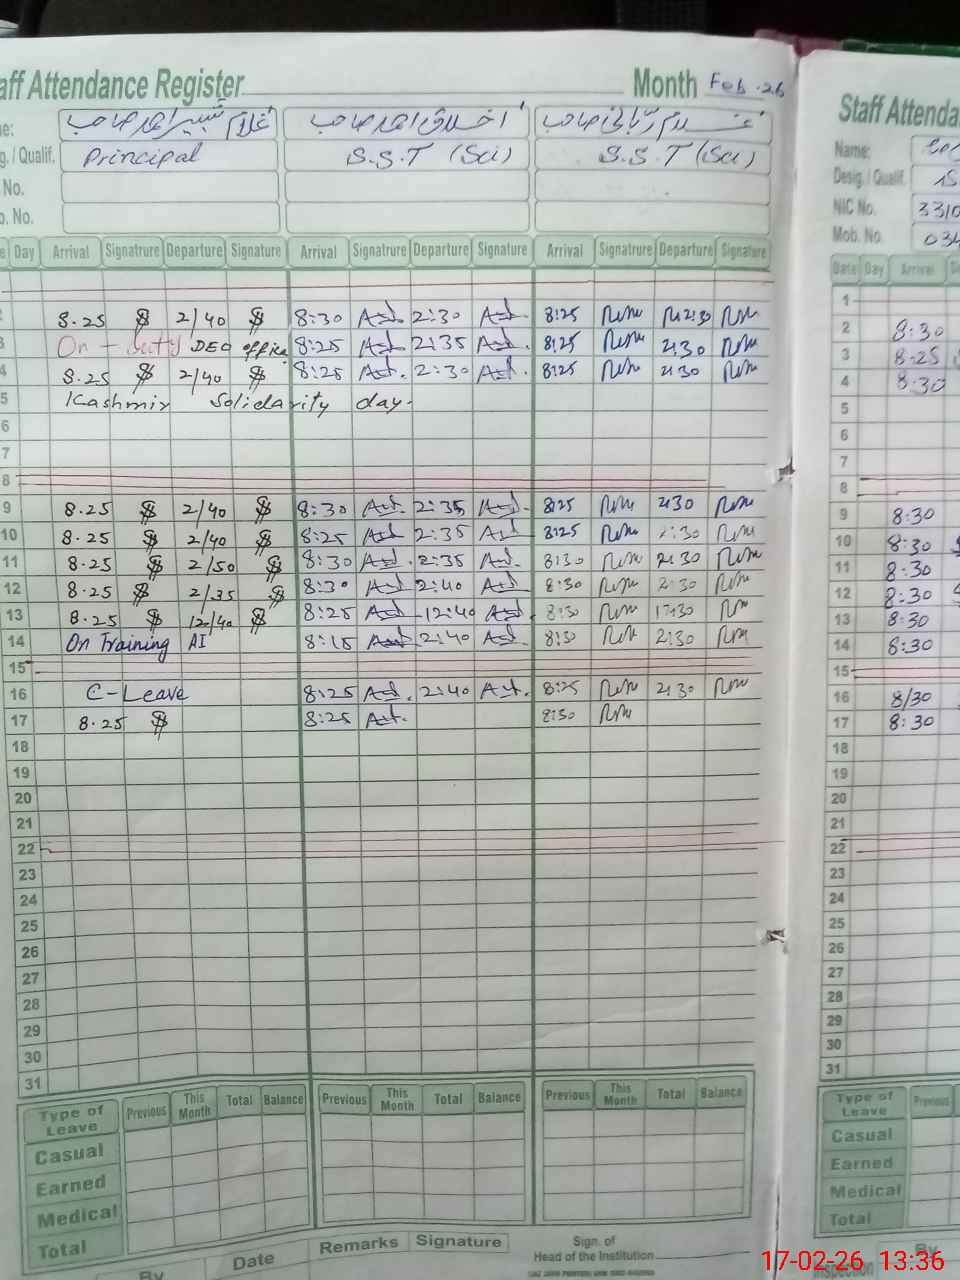 aff Attendance Register Month Feb-26
غلام شبیر احمد صاحب اخلاق احمد صاحب غلام ربانی صاحب
g. / Qualif. Principal S.S.T (Sci) S.S.T (Sci)
No.
No.
Day Arrival Signatrure Departure Signature Arrival Signatrure Departure Signature Arrival Signatrure Departure Signature
8.25 2/40 8:30 2:30 8:25 2:30
3 On - duty DEO office 8:25 2:35 8:25 2:30
4 8.25 2/40 8:25 2:30 8:25 2:30
5 Kashmir Solidarity day.
6
7
8
9 8.25 2/40 8:30 2:35 8:25 2:30
10 8.25 2/40 8:25 2:35 8:25 2:30
11 8.25 2/50 8:30 2:35 8:30 2:30
12 8.25 2/35 8:30 2:40 8:30 2:30
13 8.25 12/40 8:25 12:40 8:30 12:30
14 On Training AI 8:15 2:40 8:30 2:30
15
16 C-Leave 8:25 2:40 8:25 2:30
17 8.25 8:25 8:30
18
19
20
21
22
23
24
25
26
27
28
29
30
31
Type of Leave Previous This Month Total Balance Previous This Month Total Balance Previous This Month Total Balance
Casual
Earned
Medical
Total
By Date Remarks Signature Sign. of Head of the Institution
Staff Attenda
Name:
Desig. / Qualif.
NIC No. 3310
Mob. No. 034
Date Day Arrival
1
2 8:30
3 8:25
4 8:30
5
6
7
8
9 8:30
10 8:30
11 8:30
12 8:30
13 8:30
14 8:30
15
16 8/30
17 8:30
18
19
20
21
22
23
24
25
26
27
28
29
30
31
Type of Leave Previous
Casual
Earned
Medical
Total
Inspection By
17-02-26 13:36